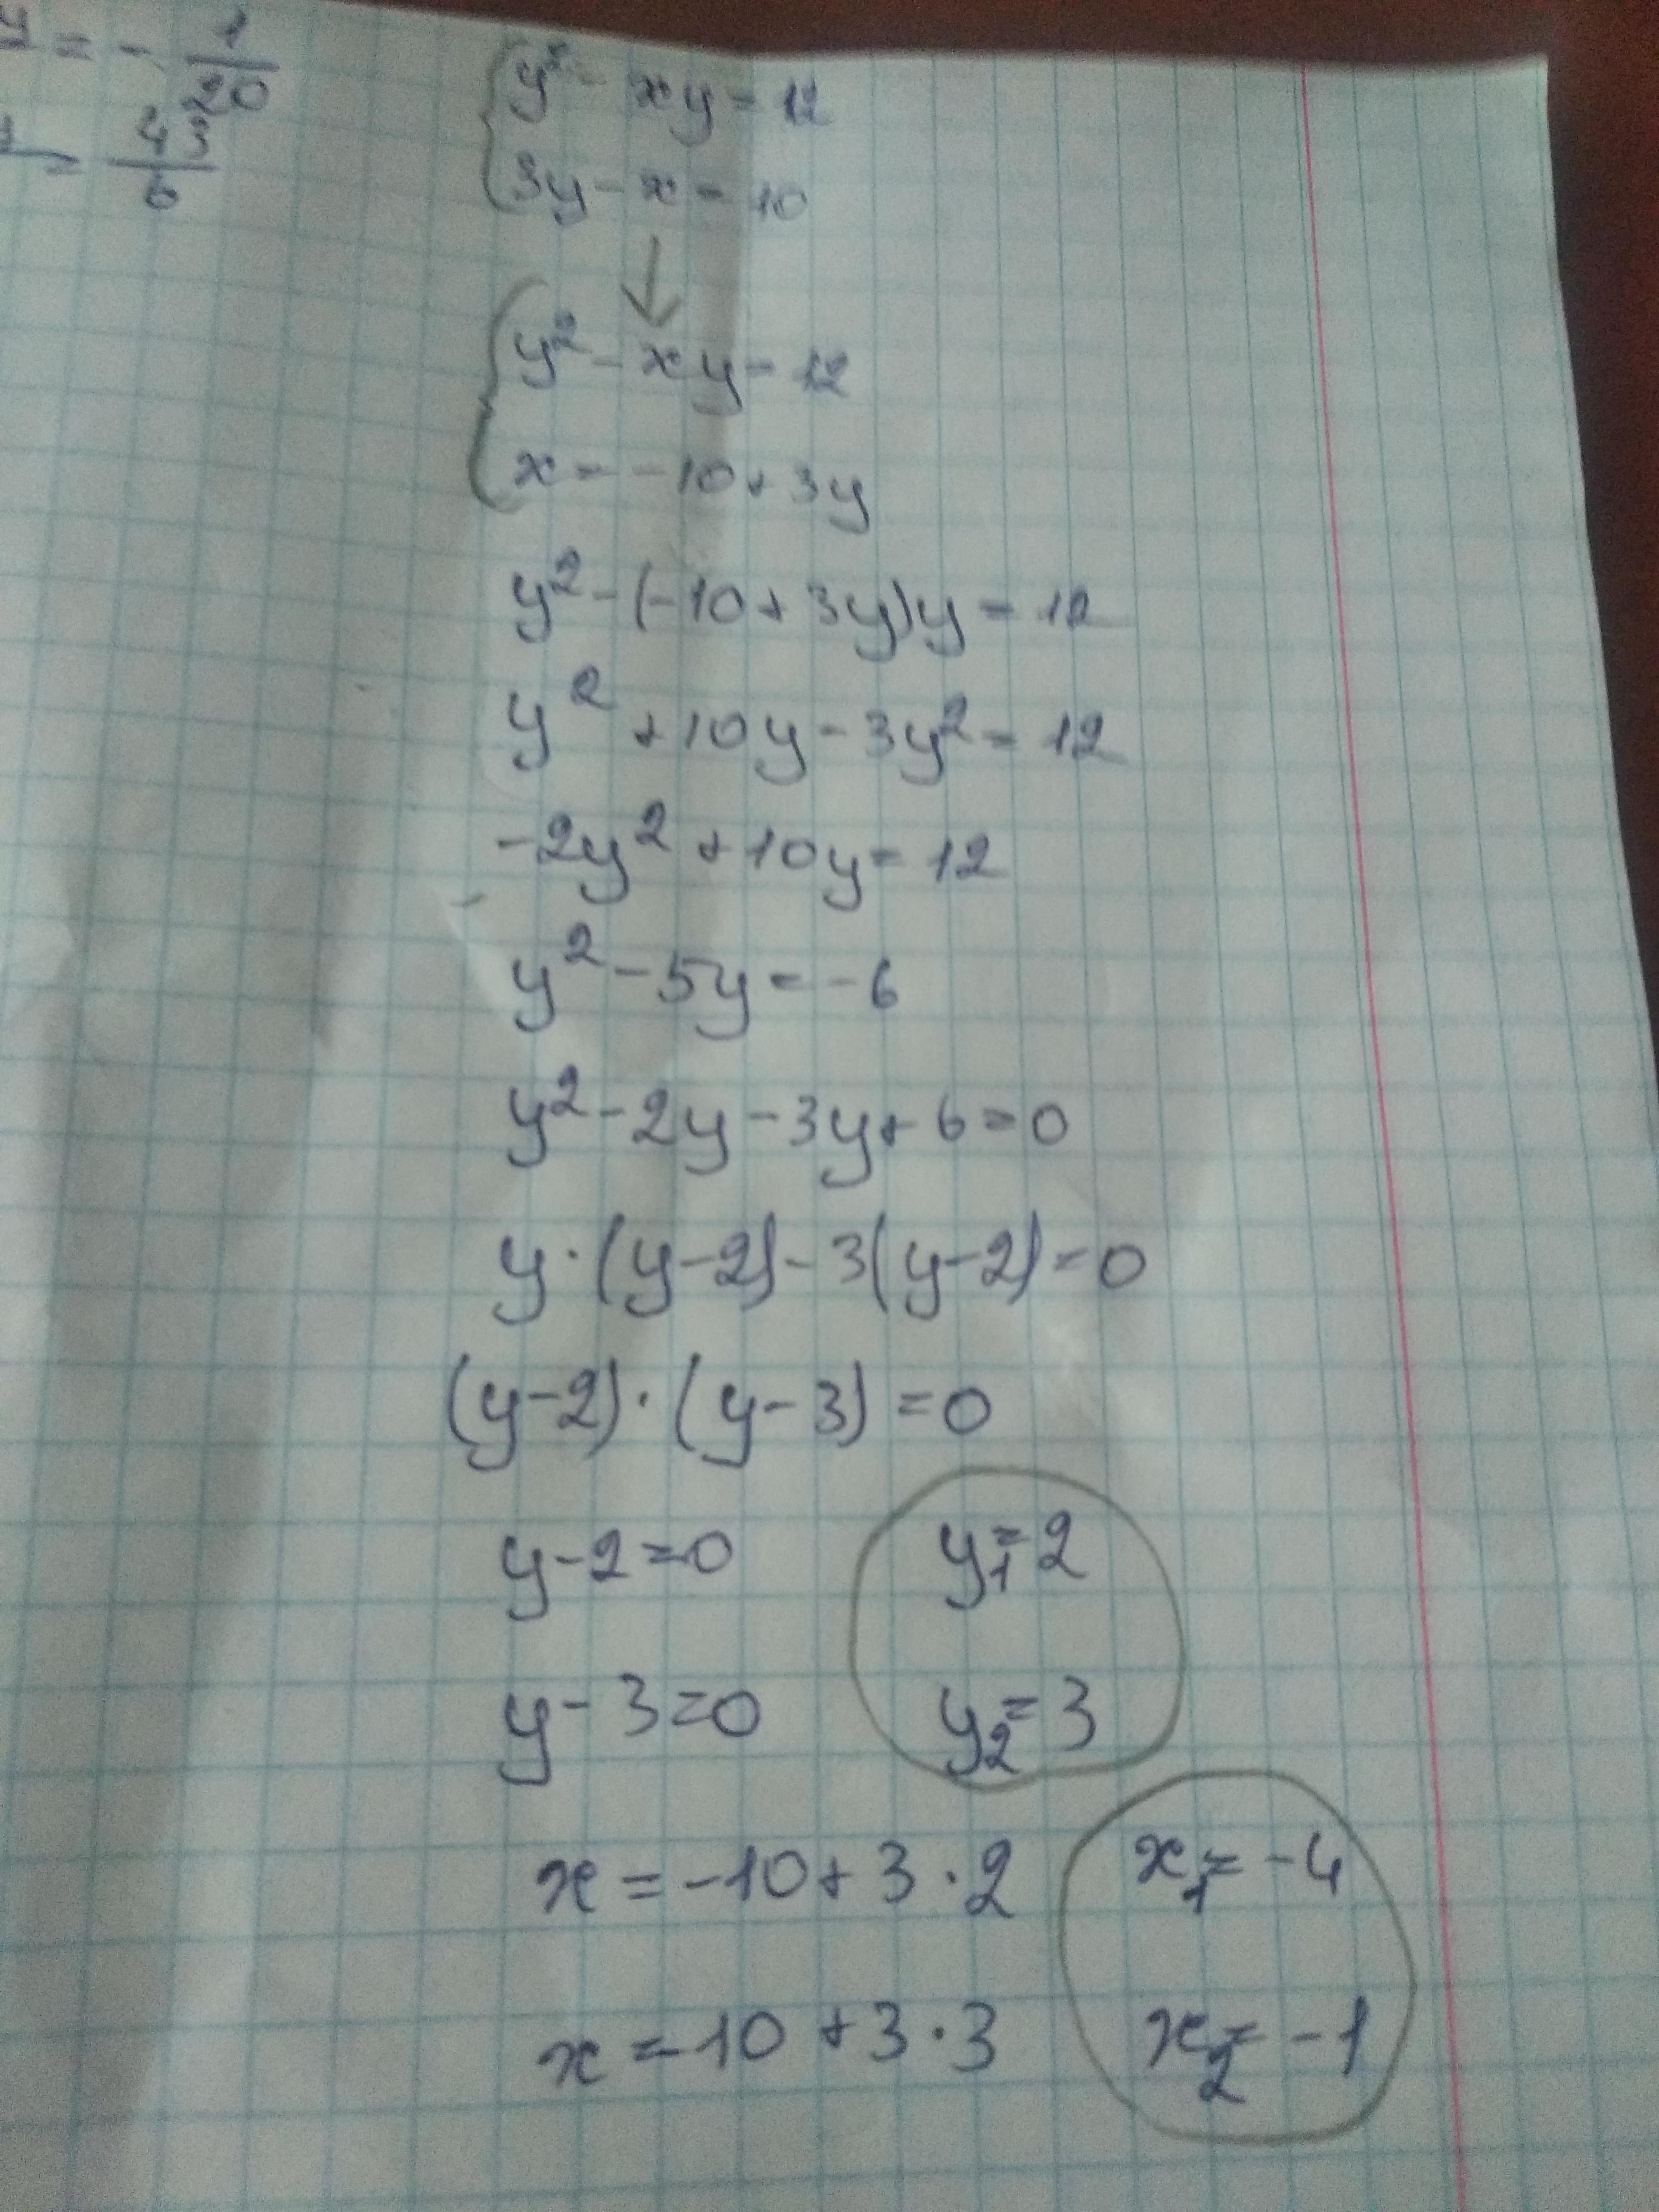 = - 1/20
= 43/6
{ y² - xy = 12
3y - x = 10
↓
{ y² - xy = 12
x = -10 + 3y
y² - (-10 + 3y)y = 12
y² + 10y - 3y² = 12
-2y² + 10y = 12
y² - 5y = -6
y² - 2y - 3y + 6 = 0
y · (y - 2) - 3(y - 2) = 0
(y - 2) · (y - 3) = 0
y - 2 = 0 y₁ = 2
y - 3 = 0 y₂ = 3
x = -10 + 3 · 2 x₁ = -4
x = -10 + 3 · 3 x₂ = -1